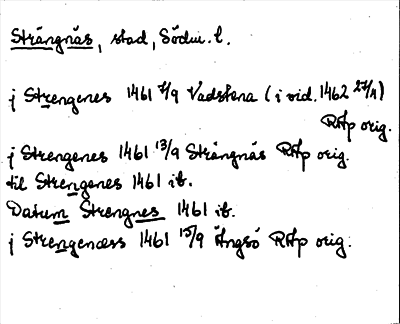 Strängnäs, stad, Södm. l.
j Strengenes 1461 7/9 Vadstena (i vid. 1462 27/4)
RAp orig.
j Strengenes 1461 13/9 Strängnäs RAp orig.
til Strengenes 1461 ib.
Datum Strengnes 1461 ib.
j Strengenæss 1461 15/9 Ängsö RAp orig.